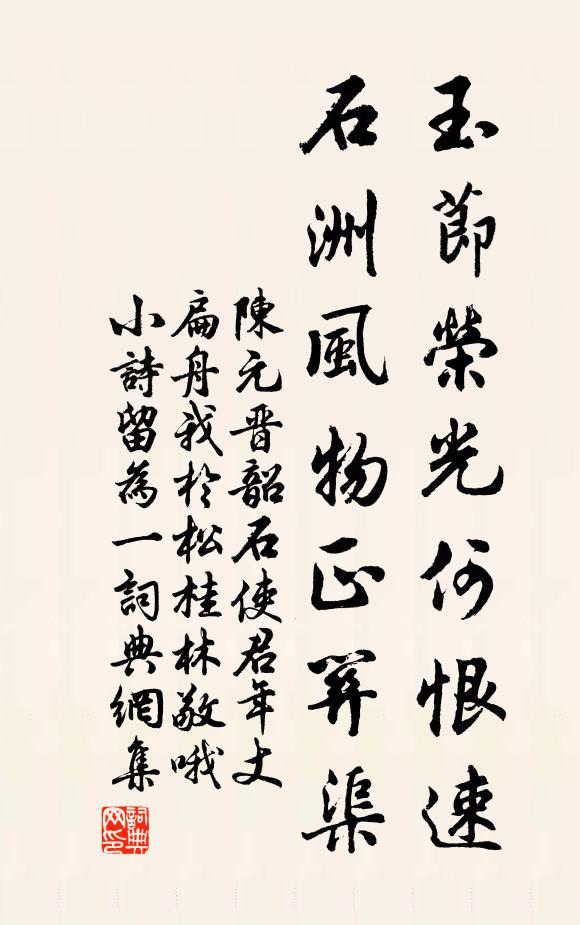 玉節榮光何恨速
石洲風物正羿渠
陳元晋韶石使君年丈
扁舟我於松桂林敬哦
小詩留為一詞典網集
詞典網印